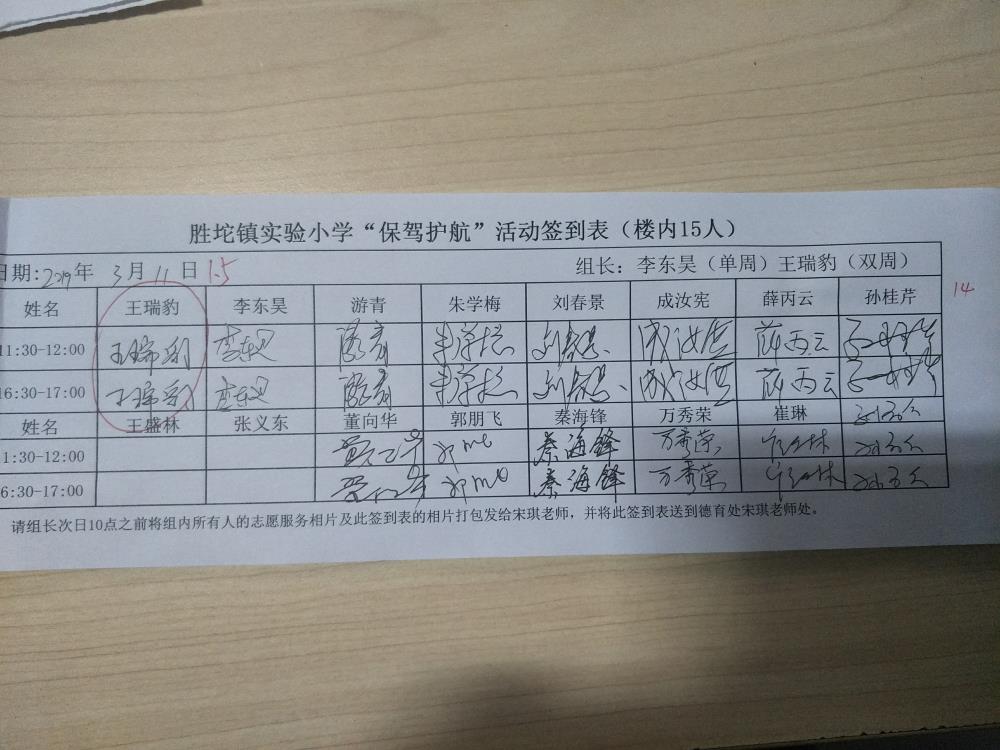 胜坨镇实验小学“保驾护航”活动签到表（楼内15人）
日期:2019年 3月 11 日 1.5 组长：李东昊（单周）王瑞豹（双周）
姓名 王瑞豹 李东昊 游青 朱学梅 刘春景 成汝宪 薛丙云 孙桂芹 14
11:30-12:00 王瑞豹 李东昊 游青 朱学梅 刘春景 成汝宪 薛丙云
16:30-17:00 王瑞豹 李东昊 游青 朱学梅 刘春景 成汝宪 薛丙云
姓名 王盛林 张义东 董向华 郭朋飞 秦海锋 万秀荣 崔琳
11:30-12:00 秦海锋 万秀荣
6:30-17:00 秦海锋 万秀荣
请组长次日10点之前将组内所有人的志愿服务相片及此签到表的相片打包发给宋琪老师，并将此签到表送到德育处宋琪老师处。